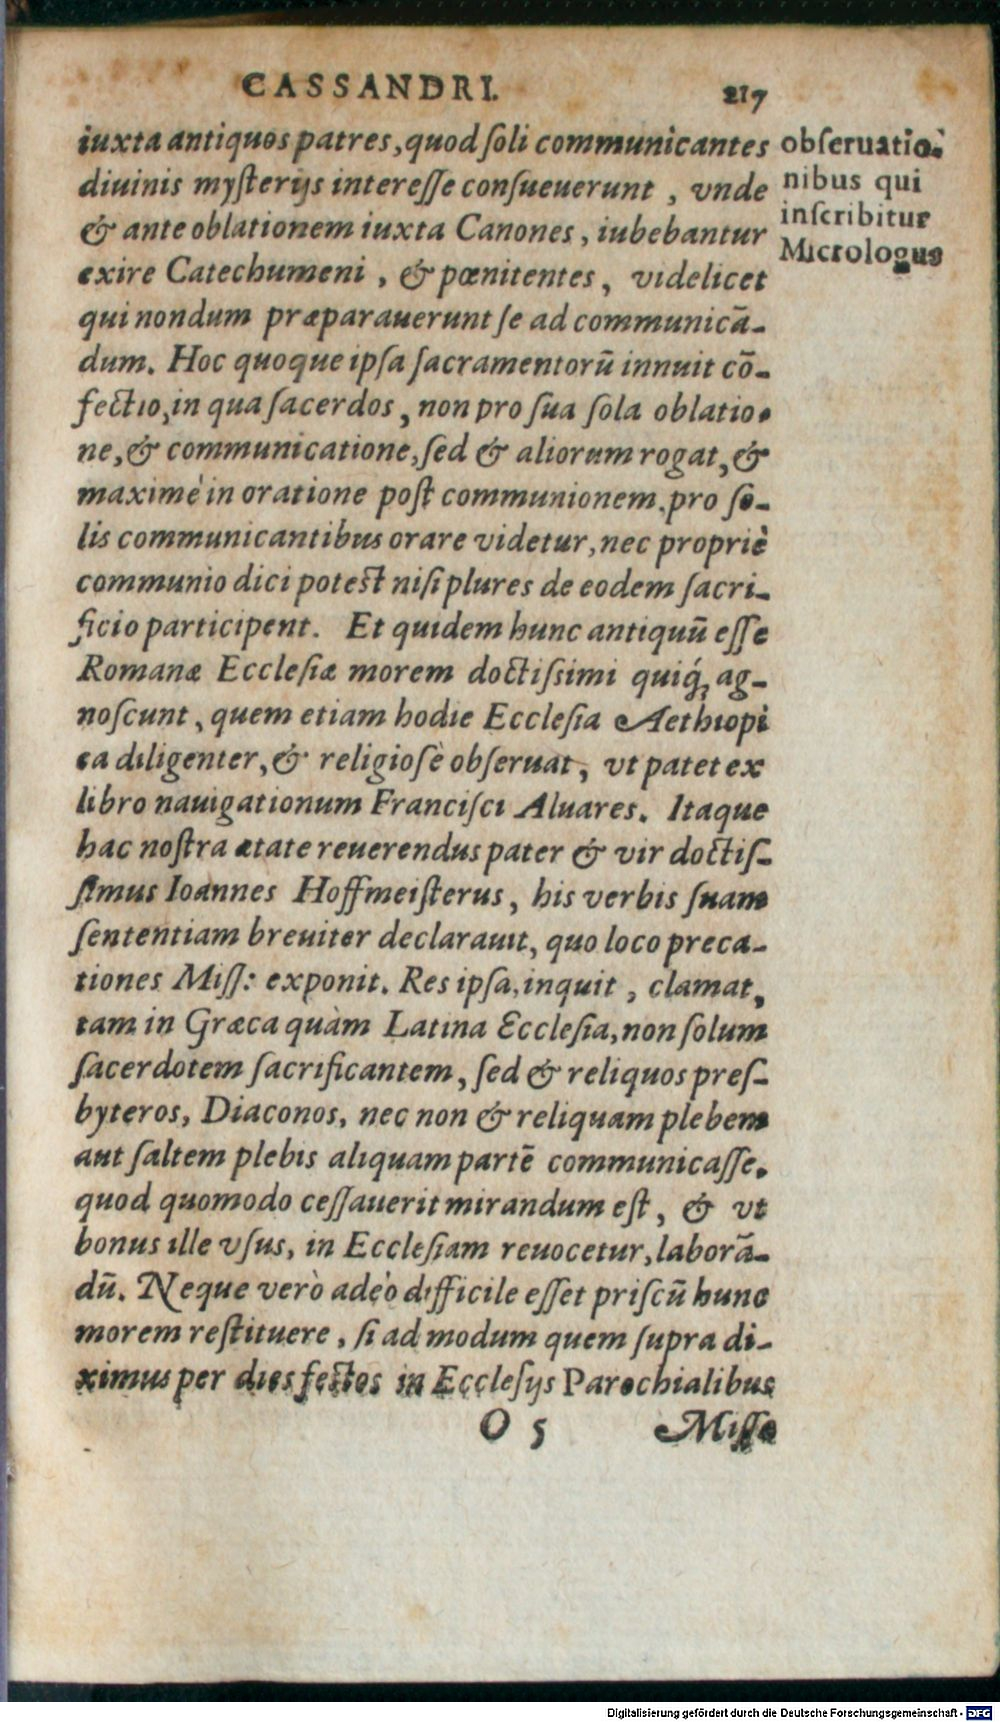 CASSANDRI. 217
iuxta antiquos patres, quod ſoli communicantes
diuinis myſterijs intereſſe conſueuerunt, vnde
& ante oblationem iuxta Canones, iubebantur
exire Catechumeni, & pœnitentes, videlicet
qui nondum præparauerunt ſe ad communicā-
dum. Hoc quoque ipſa ſacramentorū innuit cō-
fectio, in qua ſacerdos, non pro ſua ſola oblatio-
ne, & communicatione, ſed & aliorum rogat, &
maximè in oratione poſt communionem, pro ſo-
lis communicantibus orare videtur, nec propriè
communio dici poteſt niſi plures de eodem ſacri-
ficio participent. Et quidem hunc antiquū eſſe
Romanæ Eccleſiæ morem doctiſsimi quiq́; ag-
noſcunt, quem etiam hodie Eccleſia Aethiopi
ca diligenter, & religioſè obſeruat, vt patet ex
libro nauigationum Franciſci Aluares. Itaque
hac noſtra ætate reuerendus pater & vir doctiſ-
ſimus Ioannes Hoffmeiſterus, his verbis ſuam
ſententiam breuiter declarauit, quo loco preca-
tiones Miſſ: exponit. Res ipſa, inquit, clamat,
tam in Græca quàm Latina Eccleſia, non ſolum
ſacerdotem ſacrificantem, ſed & reliquos preſ-
byteros, Diaconos, nec non & reliquam plebem
aut ſaltem plebis aliquam partē communicaſſe.
quod quomodo ceſſauerit mirandum eſt, & vt
bonus ille vſus, in Eccleſiam reuocetur, laborā-
dū. Neque verò adeò difficile eſſet priſcū hunc
morem reſtituere, ſi ad modum quem ſupra di-
ximus per dies feſtos in Eccleſijs Parochialibus
O 5 Miſſe
obſeruatio-
nibus qui
inſcribitur
Micrologus
Digitalisierung gefördert durch die Deutsche Forschungsgemeinschaft - DFG